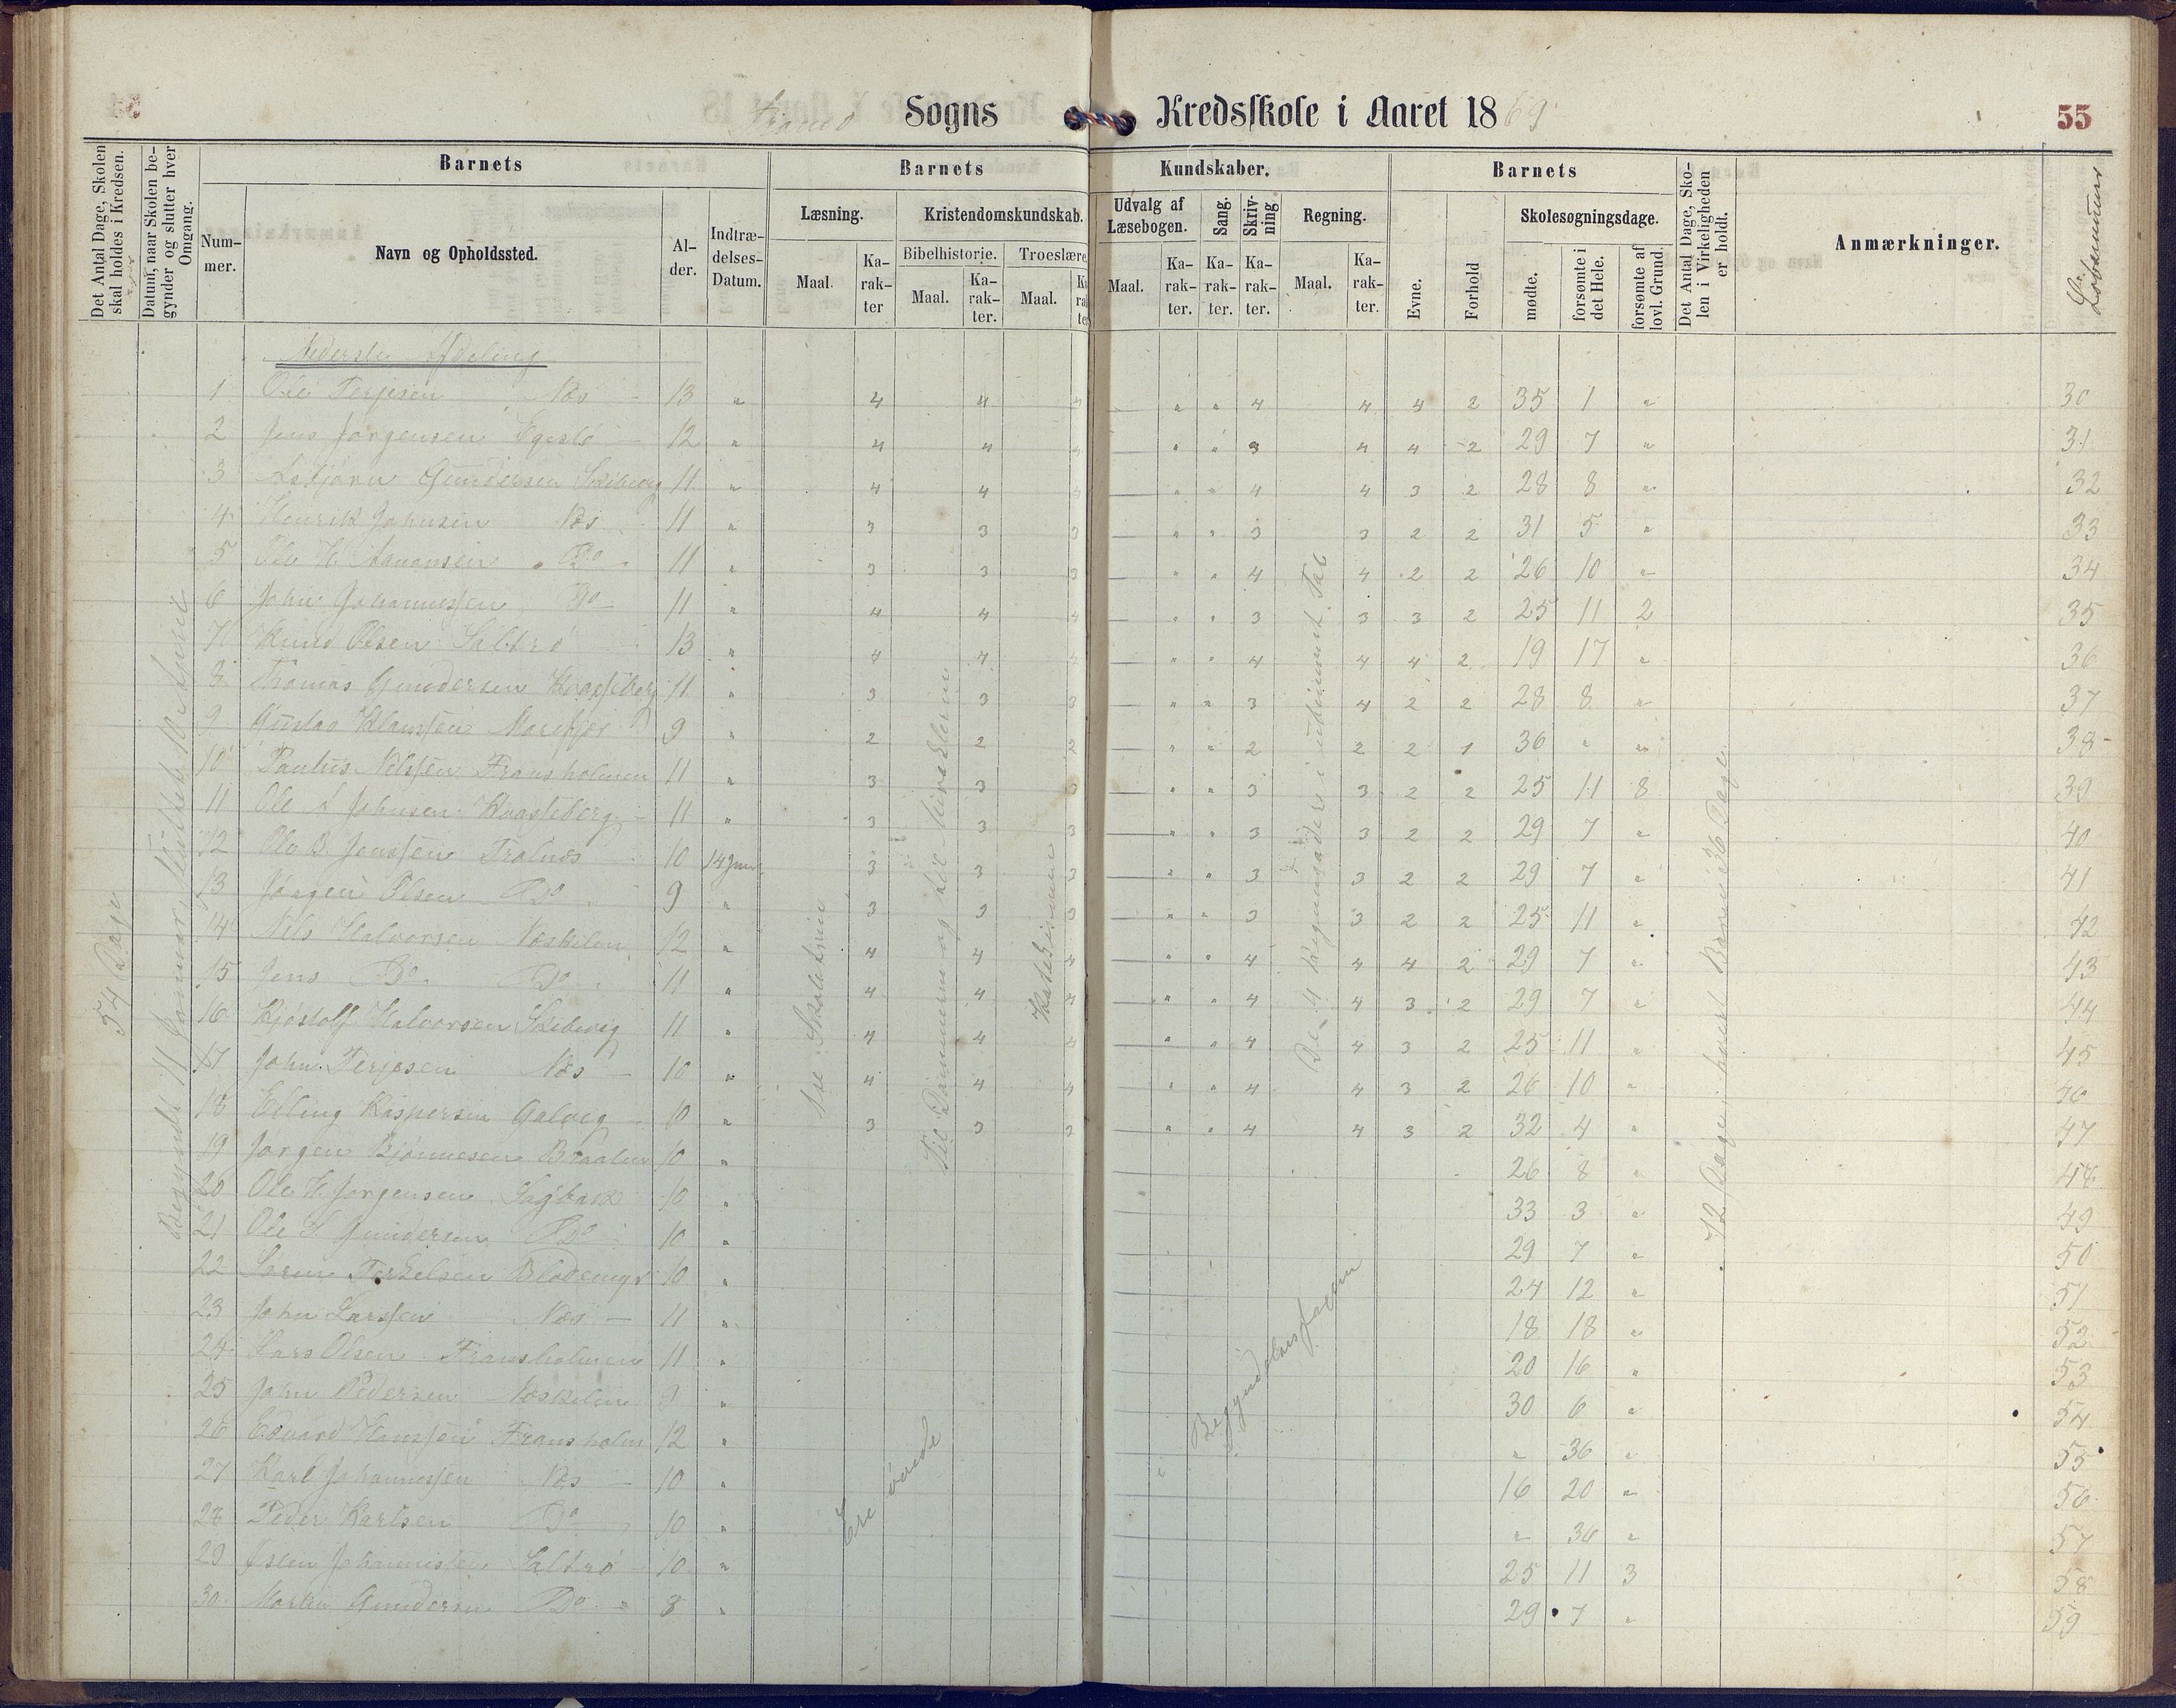 Sogns Kredsskole i Aaret 1869
55
Det Antal Dage, Skolen skal holdes i Kredsen.
Datum, naar Skolen begynder og slutter hver Omgang.
Barnets
Nummer.
Navn og Opholdssted.
Alder.
Indtrædelses-Datum.
Barnets Kundskaber.
Læsning.
Maal.
Karakter
Kristendomskundskab.
Bibelhistorie.
Maal.
Karakter.
Troeslære.
Maal.
Udvalg af Læsebogen.
Maal.
Karakter.
Sang.
Karakter.
Skrivning.
Karakter.
Regning.
Maal.
Karakter.
Barnets
Evne.
Forhold
Skolesøgningsdage.
mødte.
forsømte i det Hele.
forsømte af lovl. Grund.
Det Antal Dage, Skolen i Virkeligheden er holdt.
Anmærkninger.
Løbenumer
54 Dage
Nederste Afdeling
1 Ole Terjesen Næs 13 " 4 4 4 " " 4 4 4 2 35 1 " 30
2 Jens Jørgensen 12 " 4 4 4 " " 3 4 4 2 29 7 " 31
3 Asbjørn Gundersen Skibevig 11 " 4 4 4 " " 4 4 3 2 28 8 " 32
4 Henrik Johnsen Næs 11 " 3 3 3 " " 3 3 2 2 31 5 " 33
5 Ole H. Do 11 " 3 3 3 " " 4 4 2 2 26 10 " 34
6 John Johannessen Do 11 " 4 4 4 " " 3 3 3 2 25 11 2 35
7 Knud Olsen Saltrø 13 " 4 4 4 " " 4 4 4 2 19 17 " 36
8 Thomas Gundersen 11 " 3 3 3 " " 3 4 2 2 28 8 " 37
9 Gustav Klausen 9 " 2 2 2 " " 2 2 2 1 36 " " 38
10 Paulus Nilssen Fransholmen 11 " 3 3 3 " " 3 3 2 2 25 11 8 39
11 Ole A Johnsen 11 " 3 3 3 " " 3 3 2 2 29 7 " 40
12 Ole B. Jenssen 10 14 Jan. 3 3 3 " " 3 3 2 2 29 7 " 41
13 Jørgen Olsen Do 9 " 3 3 3 " " 3 3 2 2 25 11 " 42
14 Nils Halvorsen Næskilen 12 " 4 4 4 " " 4 4 4 2 29 7 " 43
15 Jens Do Do 11 " 4 4 4 " " 4 4 3 2 29 7 " 44
16 Kjøstolf Halvorsen Skibevig 11 " 4 4 4 " " 4 4 3 2 25 11 " 45
17 John Terjesen Næs 10 " 4 4 4 " " 4 4 3 2 26 10 " 46
18 Elling Kaspersen Galvig 10 " 3 3 3 " " 4 4 3 2 32 4 " 47
19 Jørgen 10 " 26 8 " 48
20 Ole H. Jørgensen Sagbakk 10 " 33 3 " 49
21 Ole S Gundersen Do 10 " 29 7 " 50
22 Søren Terkelsen 10 " 24 12 " 51
23 John Larssen Næs 11 " 18 18 " 52
24 Lars Olsen Fransholmen 11 " 20 16 " 53
25 John Pedersen Næskilen 9 " 30 6 " 54
26 Edvard Hanssen Fransholm 12 " " 36 " 55
27 Karl Johannessen Næs 10 " 16 20 " 56
28 Peder Karlsen Do 10 " " 36 " 57
29 Johannessen Saltrø 10 " 25 11 3 58
30 Martin Gundersen Do 8 " 29 7 " 59
Begyndt 11 Januar, sluttet April
Katekismen
De 4 Regningsarter i ubenævnt Tal
72 Dage, hvert Barn 36 Dage
Ere øvede